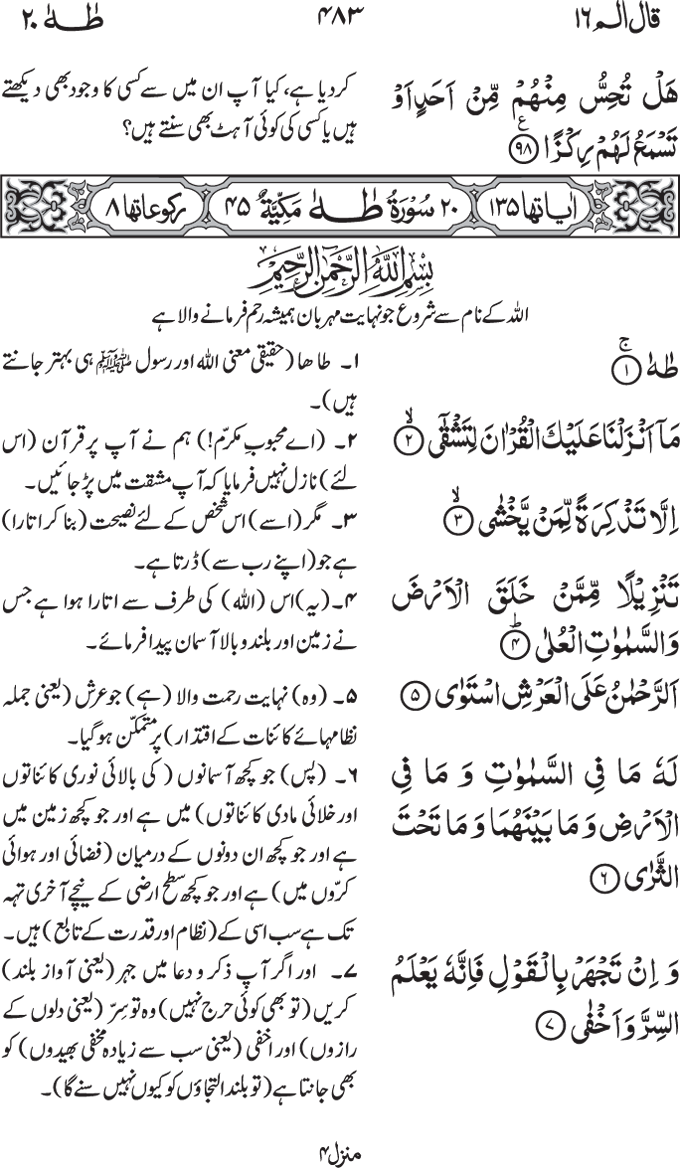 قال الم ١٦
٤٨٣
طٰهٰ ٢٠
هَلْ تُحِسُّ مِنْهُمْ مِّنْ اَحَدٍ اَوْ
تَسْمَعُ لَهُمْ رِكْزًا ﴿٩٨﴾ ع
کر دیا ہے، کیا آپ ان میں سے کسی کا وجود بھی دیکھتے
ہیں یا کسی کی کوئی آہٹ بھی سنتے ہیں؟
اٰیاتها ١٣٥
٢٠ سُوْرَةُ طٰهٰ مَكِّيَّةٌ ٤٥
رکوعاتها ٨
بِسْمِ اللّٰهِ الرَّحْمٰنِ الرَّحِيْمِ
اللہ کے نام سے شروع جو نہایت مہربان ہمیشہ رحم فرمانے والا ہے
طٰهٰ ﴿١﴾ ج
۱۔ طا ھا (حقیقی معنی اللہ اور رسول ﷺ ہی بہتر جانتے
ہیں)۔
مَاۤ اَنْزَلْنَا عَلَيْكَ الْقُرْاٰنَ لِتَشْقٰۤى ﴿٢﴾ لا
۲۔ (اے محبوبِ مکرّم!) ہم نے آپ پر قرآن (اس
لئے) نازل نہیں فرمایا کہ آپ مشقت میں پڑ جائیں۔
اِلَّا تَذْكِرَةً لِّمَنْ يَّخْشٰى ﴿٣﴾ لا
۳۔ مگر (اسے) اس شخص کے لئے نصیحت (بنا کر اتارا)
ہے جو (اپنے رب سے) ڈرتا ہے۔
تَنْزِيْلًا مِّمَّنْ خَلَقَ الْاَرْضَ
وَالسَّمٰوٰتِ الْعُلٰى ﴿٤﴾ ط
۴۔ (یہ) اس (اللہ) کی طرف سے اتارا ہوا ہے جس
نے زمین اور بلند و بالا آسمان پیدا فرمائے۔
اَلرَّحْمٰنُ عَلَى الْعَرْشِ اسْتَوٰى ﴿٥﴾
۵۔ (وہ) نہایت رحمت والا (ہے) جو عرش (یعنی جملہ
نظام ہائے کائنات کے اقتدار) پر متمکّن ہو گیا۔
لَهٗ مَا فِي السَّمٰوٰتِ وَ مَا فِي
الْاَرْضِ وَ مَا بَيْنَهُمَا وَ مَا تَحْتَ
الثَّرٰى ﴿٦﴾
۶۔ (پس) جو کچھ آسمانوں (کی بالائی نوری کائناتوں
اور خلائی مادی کائناتوں) میں ہے اور جو کچھ زمین میں
ہے اور جو کچھ ان دونوں کے درمیان (فضائی اور ہوائی
کرّوں میں) ہے اور جو کچھ سطح ارضی کے نیچے آخری تہہ
تک ہے سب اسی کے (نظام اور قدرت کے تابع) ہیں۔
وَ اِنْ تَجْهَرْ بِالْقَوْلِ فَاِنَّهٗ يَعْلَمُ
السِّرَّ وَ اَخْفٰى ﴿٧﴾
۷۔ اور اگر آپ ذکر و دعا میں جہر (یعنی آواز بلند)
کریں (تو بھی کوئی حرج نہیں) وہ تو سِرّ (یعنی دلوں کے
رازوں) اور اخفی (یعنی سب سے زیادہ مخفی بھیدوں) کو
بھی جانتا ہے (تو بلند التجاؤں کو کیوں نہیں سنے گا)۔
منزل ٤